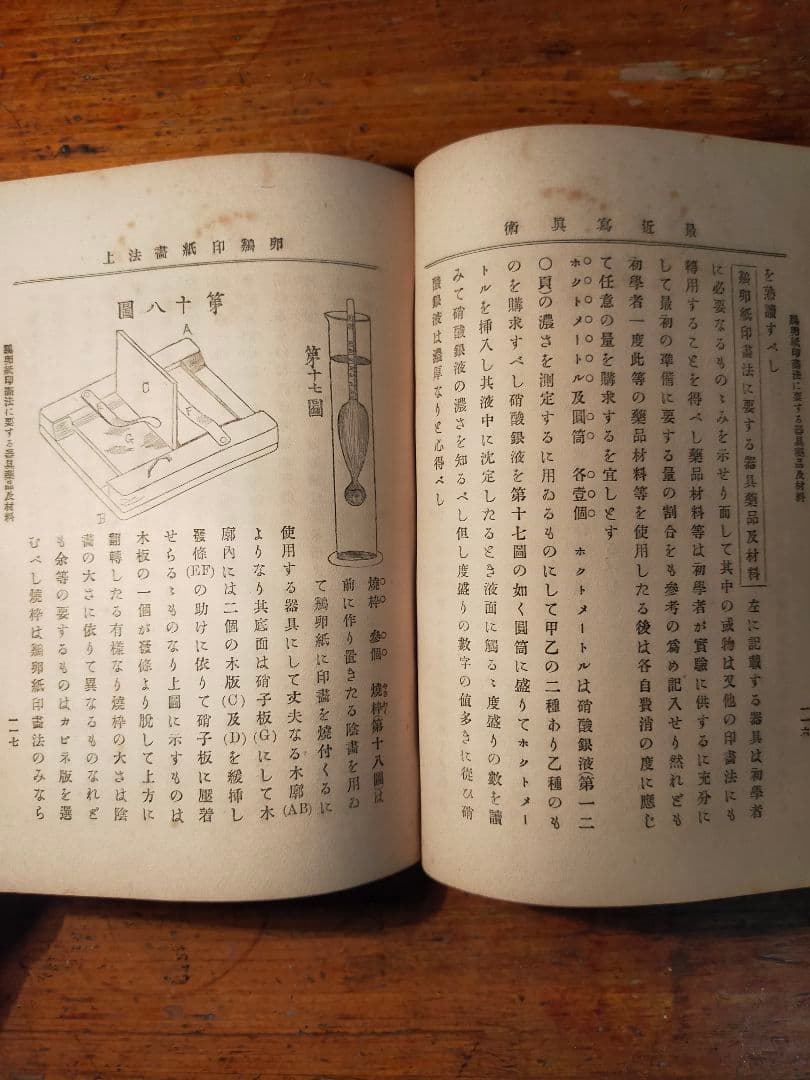 最近寫眞術
鷄卵紙印畫法に要する器具藥品及材料
一一六
を熟讀すべし
鷄卵紙印畫法に要する器具藥品及材料 左に記載する器具は初學者
に必要なるものゝみを示せり而して其中の或物は又他の印畫法にも
轉用することを得べし藥品材料等は初學者が實驗に供するに充分に
して最初の準備に要する量の割合をも參考の爲め記入せり然れども
初學者一度此等の藥品材料等を使用したる後は各自費消の度に應じ
て任意の量を購求するを宜しとす
ホクトメートル及圓筒 各壹個 ホクトメートルは硝酸銀液(第一二
〇頁)の濃さを測定するに用ゐるものにして甲乙の二種あり乙種のも
のを購求すべし硝酸銀液を第十七圖の如く圓筒に盛りてホクトメー
トルを挿入し其液中に沈定したるとき液面に觸るゝ度盛りの數を讀
みて硝酸銀液の濃さを知るべし但し度盛りの數字の値多きに從ひ硝
酸銀液は濃厚なりと心得べし
卵鷄印紙畫法上
第十七圖
第十八圖
A
B
C
G
燒枠 參個 燒枠第十八圖は
前に作り置きたる陰畫を用ゐ
て鷄卵紙に印畫を燒付くるに
使用する器具にして丈夫なる木廓(AB)
よりなり其底面は硝子板(G)にして木
廓內には二個の木版(C及D)を緩挿し
發條(EF)の助けに依りて硝子板に壓着
せらるゝものなり上圖に示すものは
木板の一個が發條より脫して上方に
飜轉したる有樣なり燒枠の大さは陰
畫の大さに依りて異なるものなれど
も余等の要するものはカビネ版を選
むべし燒枠は鷄卵紙印畫法のみなら
鷄卵紙印畫法に要する器具藥品及材料
一一七